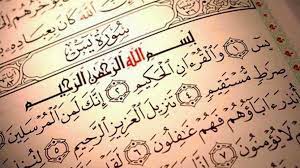 ٱللَّهَ كَانَ بِعِبَادِهِ
سُورَةُ يسٓ
بِسْمِ ٱللَّهِ ٱلرَّحْمَٰنِ ٱلرَّحِيمِ
يسٓ ١ وَٱلْقُرْءَانِ ٱلْحَكِيمِ ٢ إِنَّكَ لَمِنَ ٱلْمُرْسَلِينَ
صِرَٰطٍ مُّسْتَقِيمٍ ٤ تَنزِيلَ ٱلْعَزِيزِ ٱلرَّحِيمِ
ءَابَآؤُهُمْ فَهُمْ غَٰفِلُونَ ٦
لَا يُؤْمِنُونَ ٧